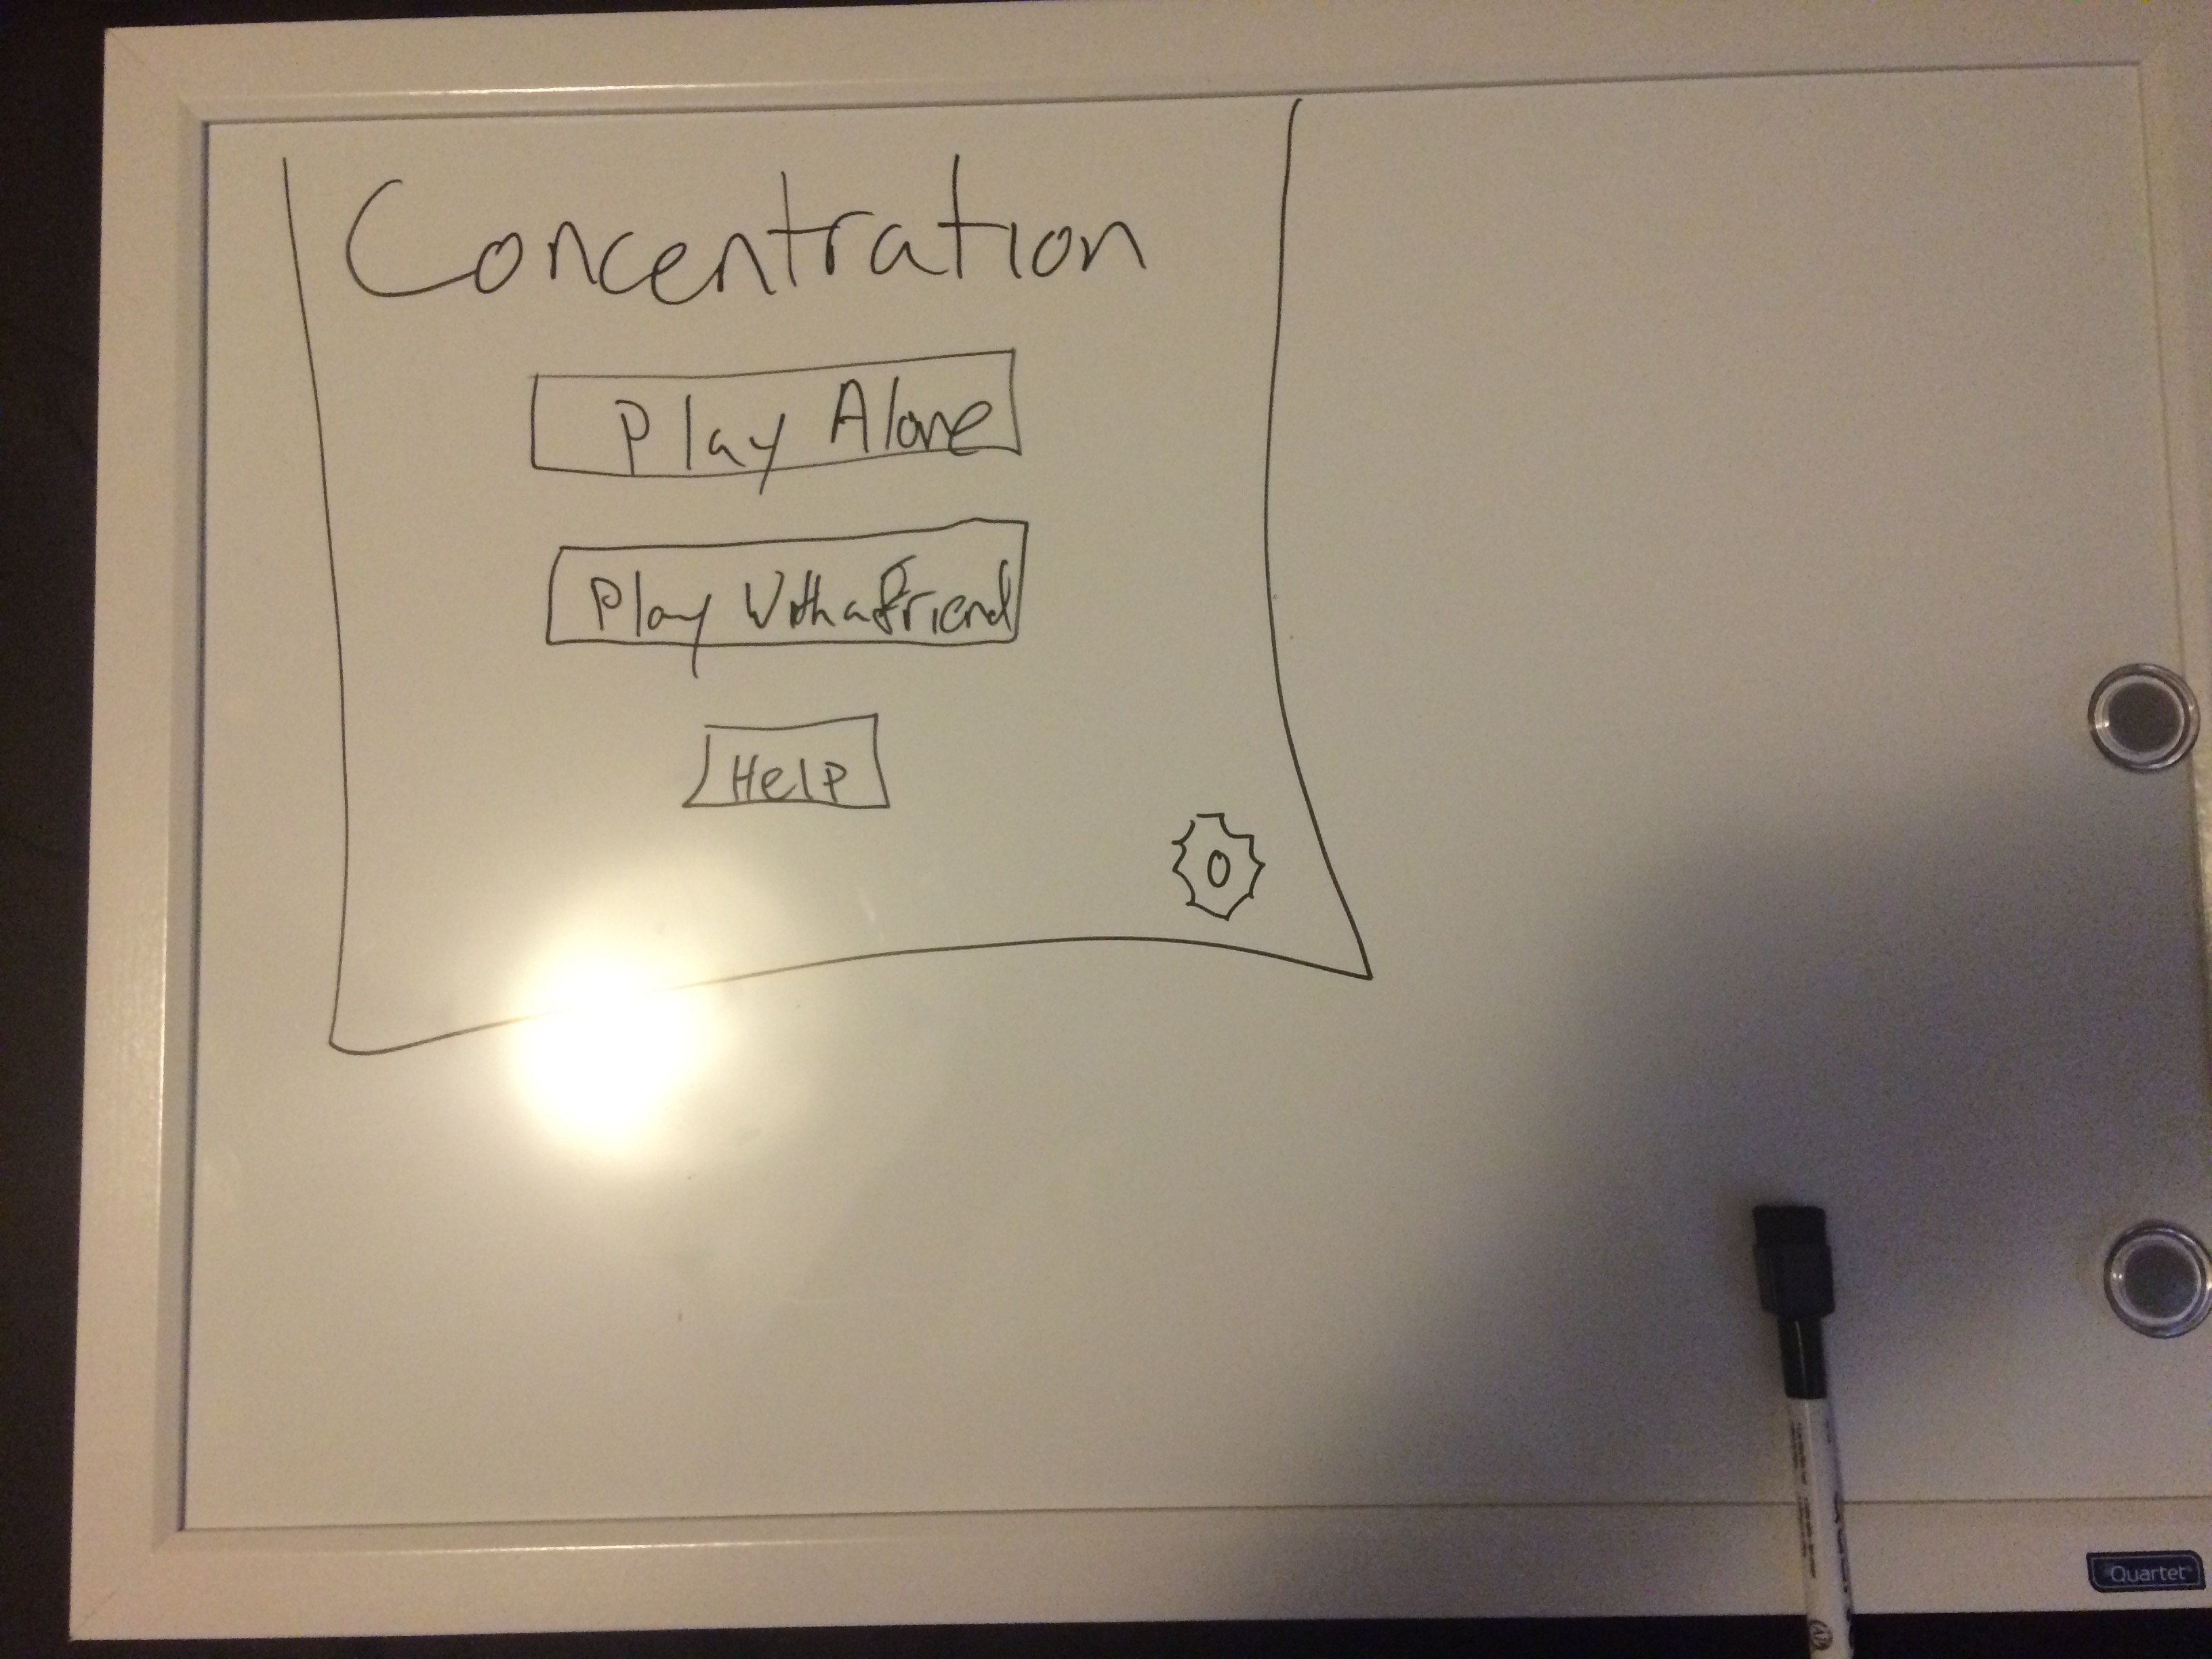 Concentration
Play Alone
Play With a friend
Help
Quartet